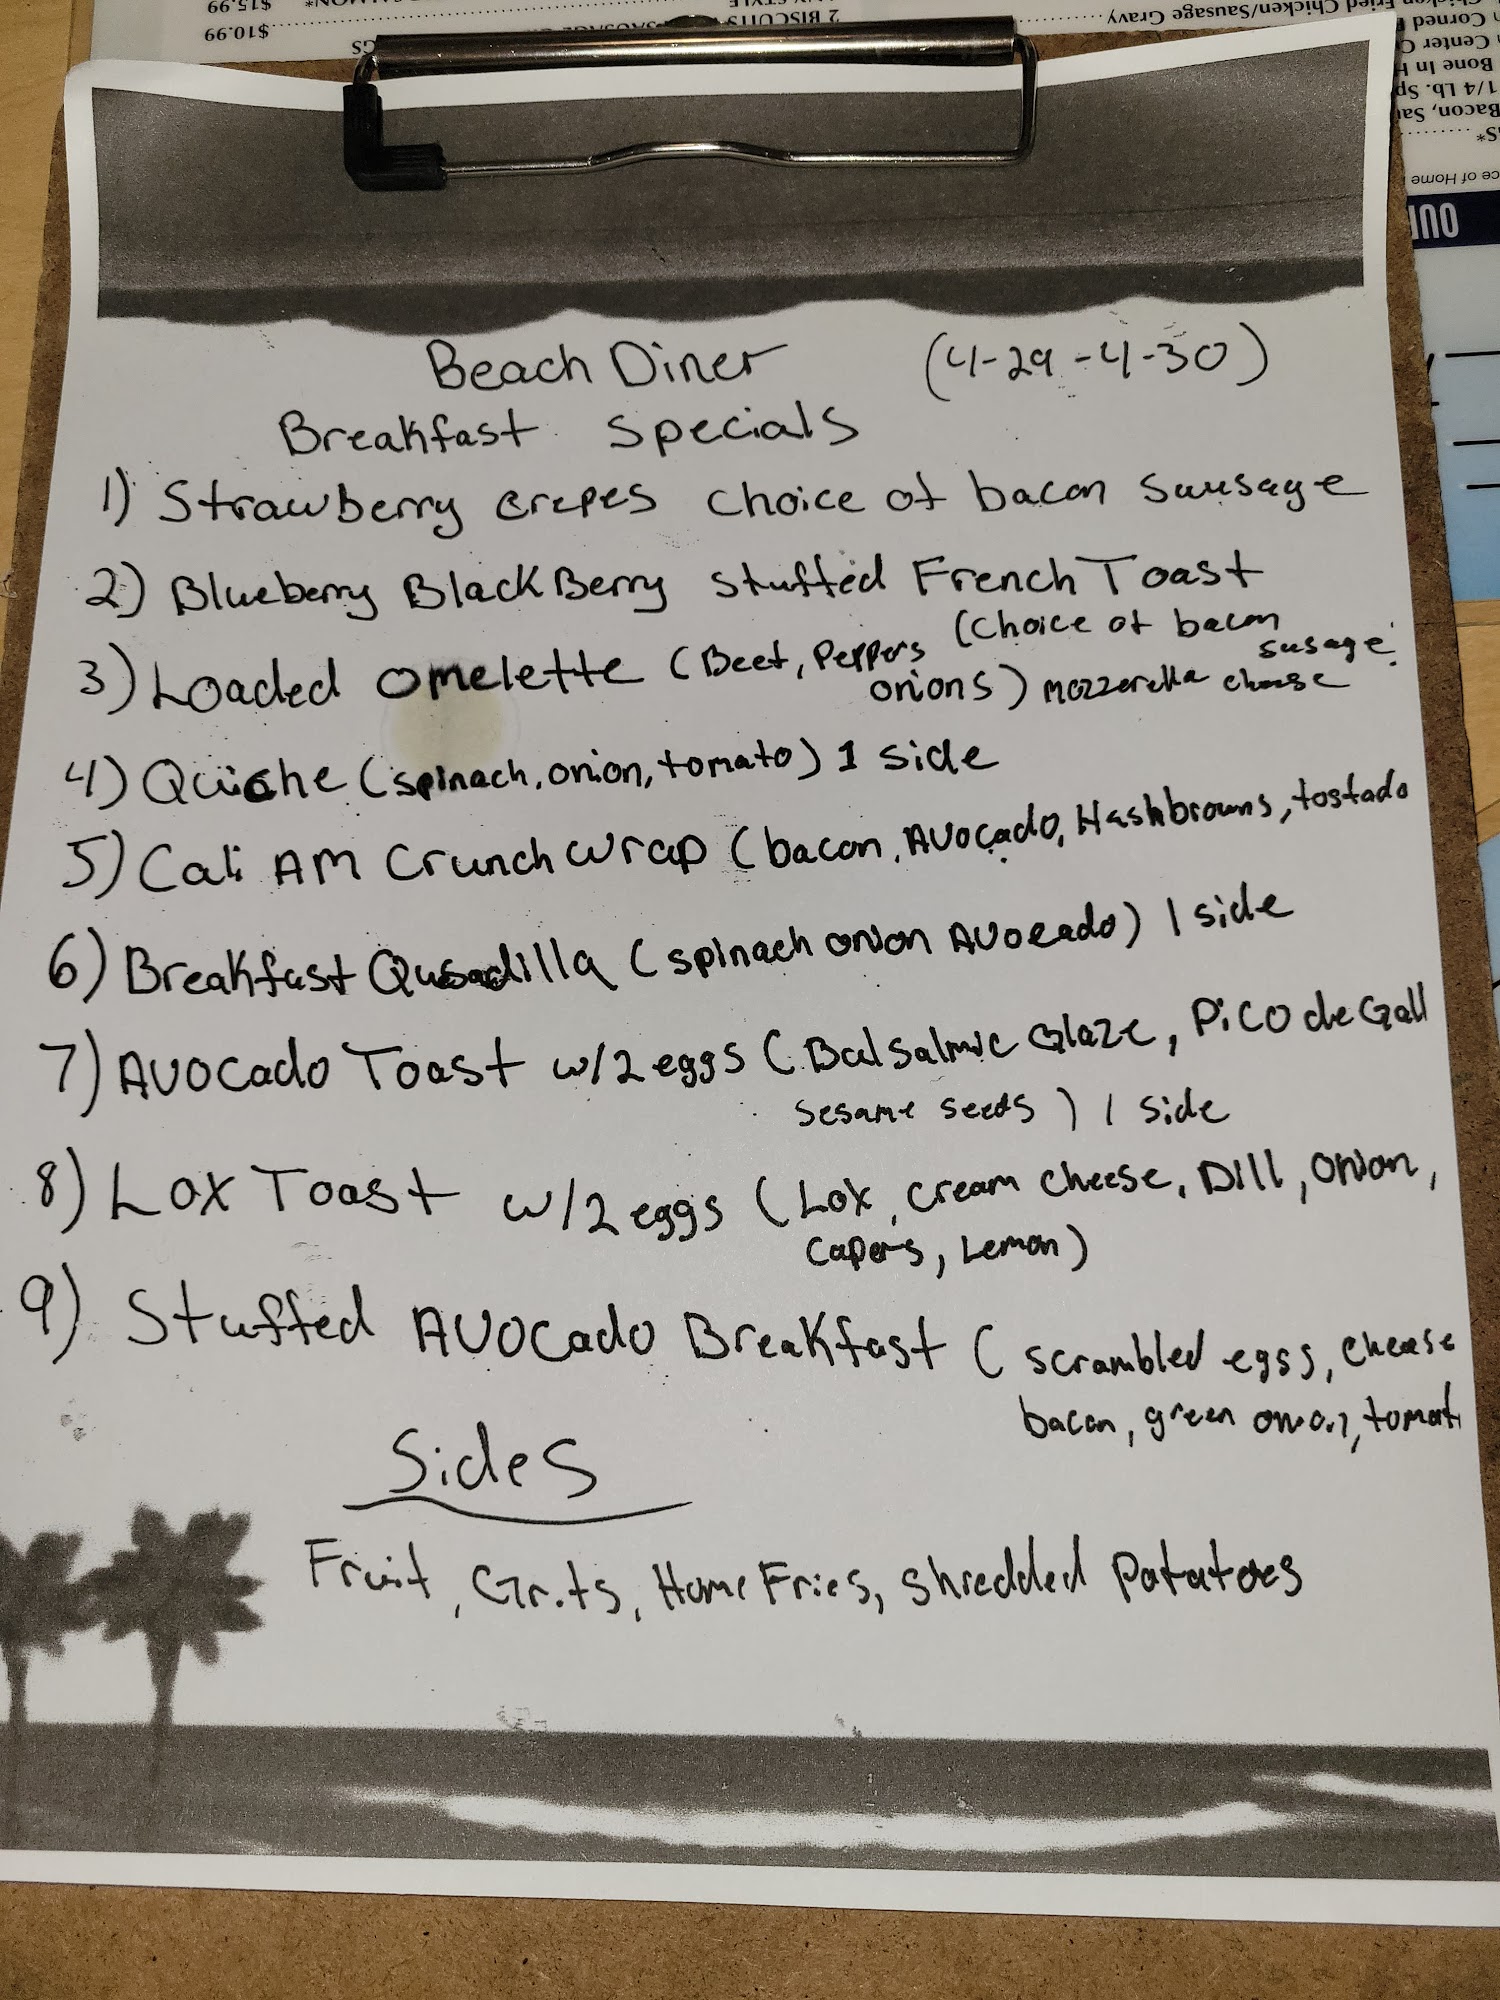 $15.99
2 BISCUITS
$10.99
Fried Chicken/Sausage Gravy
Corned
Center
Bone In
1/4 Lb. Sp
Bacon, Sau
ce of Home
OUR
Beach Diner (4-29-4-30)
Breakfast Specials
1) Strawberry crepes choice of bacon sausage
2) Blueberry BlackBerry stuffed French Toast
(choice of bacon
susage
3) Loaded omelette (Beef, Peppers
onions) mozzerella cheese
4) Quiche (spinach, onion, tomato) 1 side
5) Cali AM Crunch wrap (bacon, Avocado, Hashbrowns, tostado
6) Breakfast Qusadilla (spinach onion Avocado) 1 side
7) Avocado Toast w/2 eggs (Balsalmic Glaze, Pico de Gall
sesame seeds) 1 side
8) Lox Toast w/2 eggs (Lox, cream cheese, Dill, onion,
capers, Lemon)
9) Stuffed Avocado Breakfast (scrambled eggs, cheese
bacon, green onion, tomat
Sides
Fruit, Grits, Home Fries, shredded Potatoes